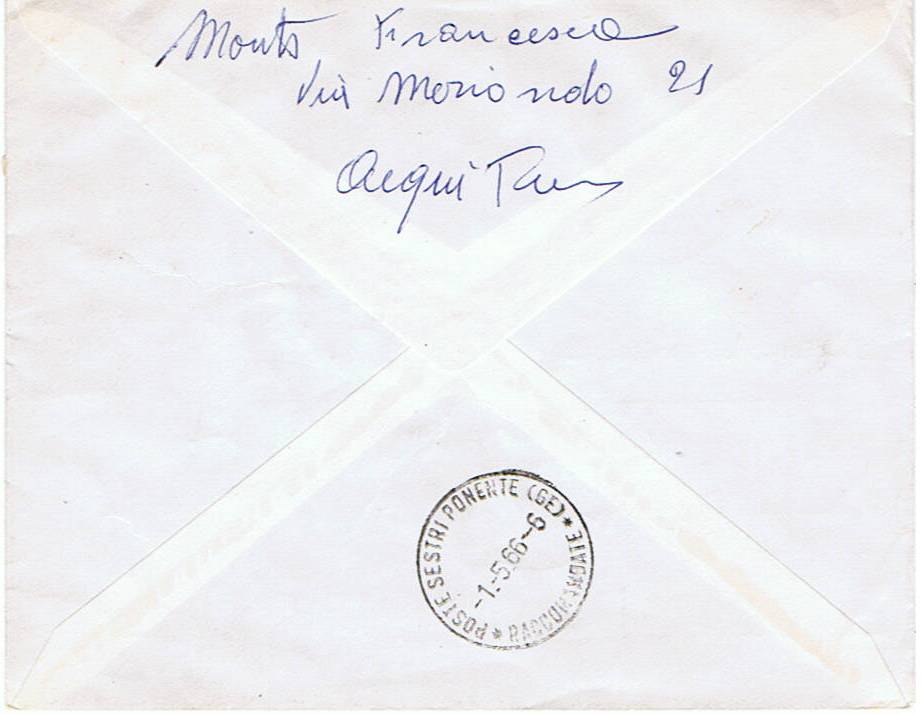 Francesca
Via Moriondo 21
Acqui
POSTE SESTRI PONENTE (GE) * RACCOMANDATE *
-1.-5.66-6